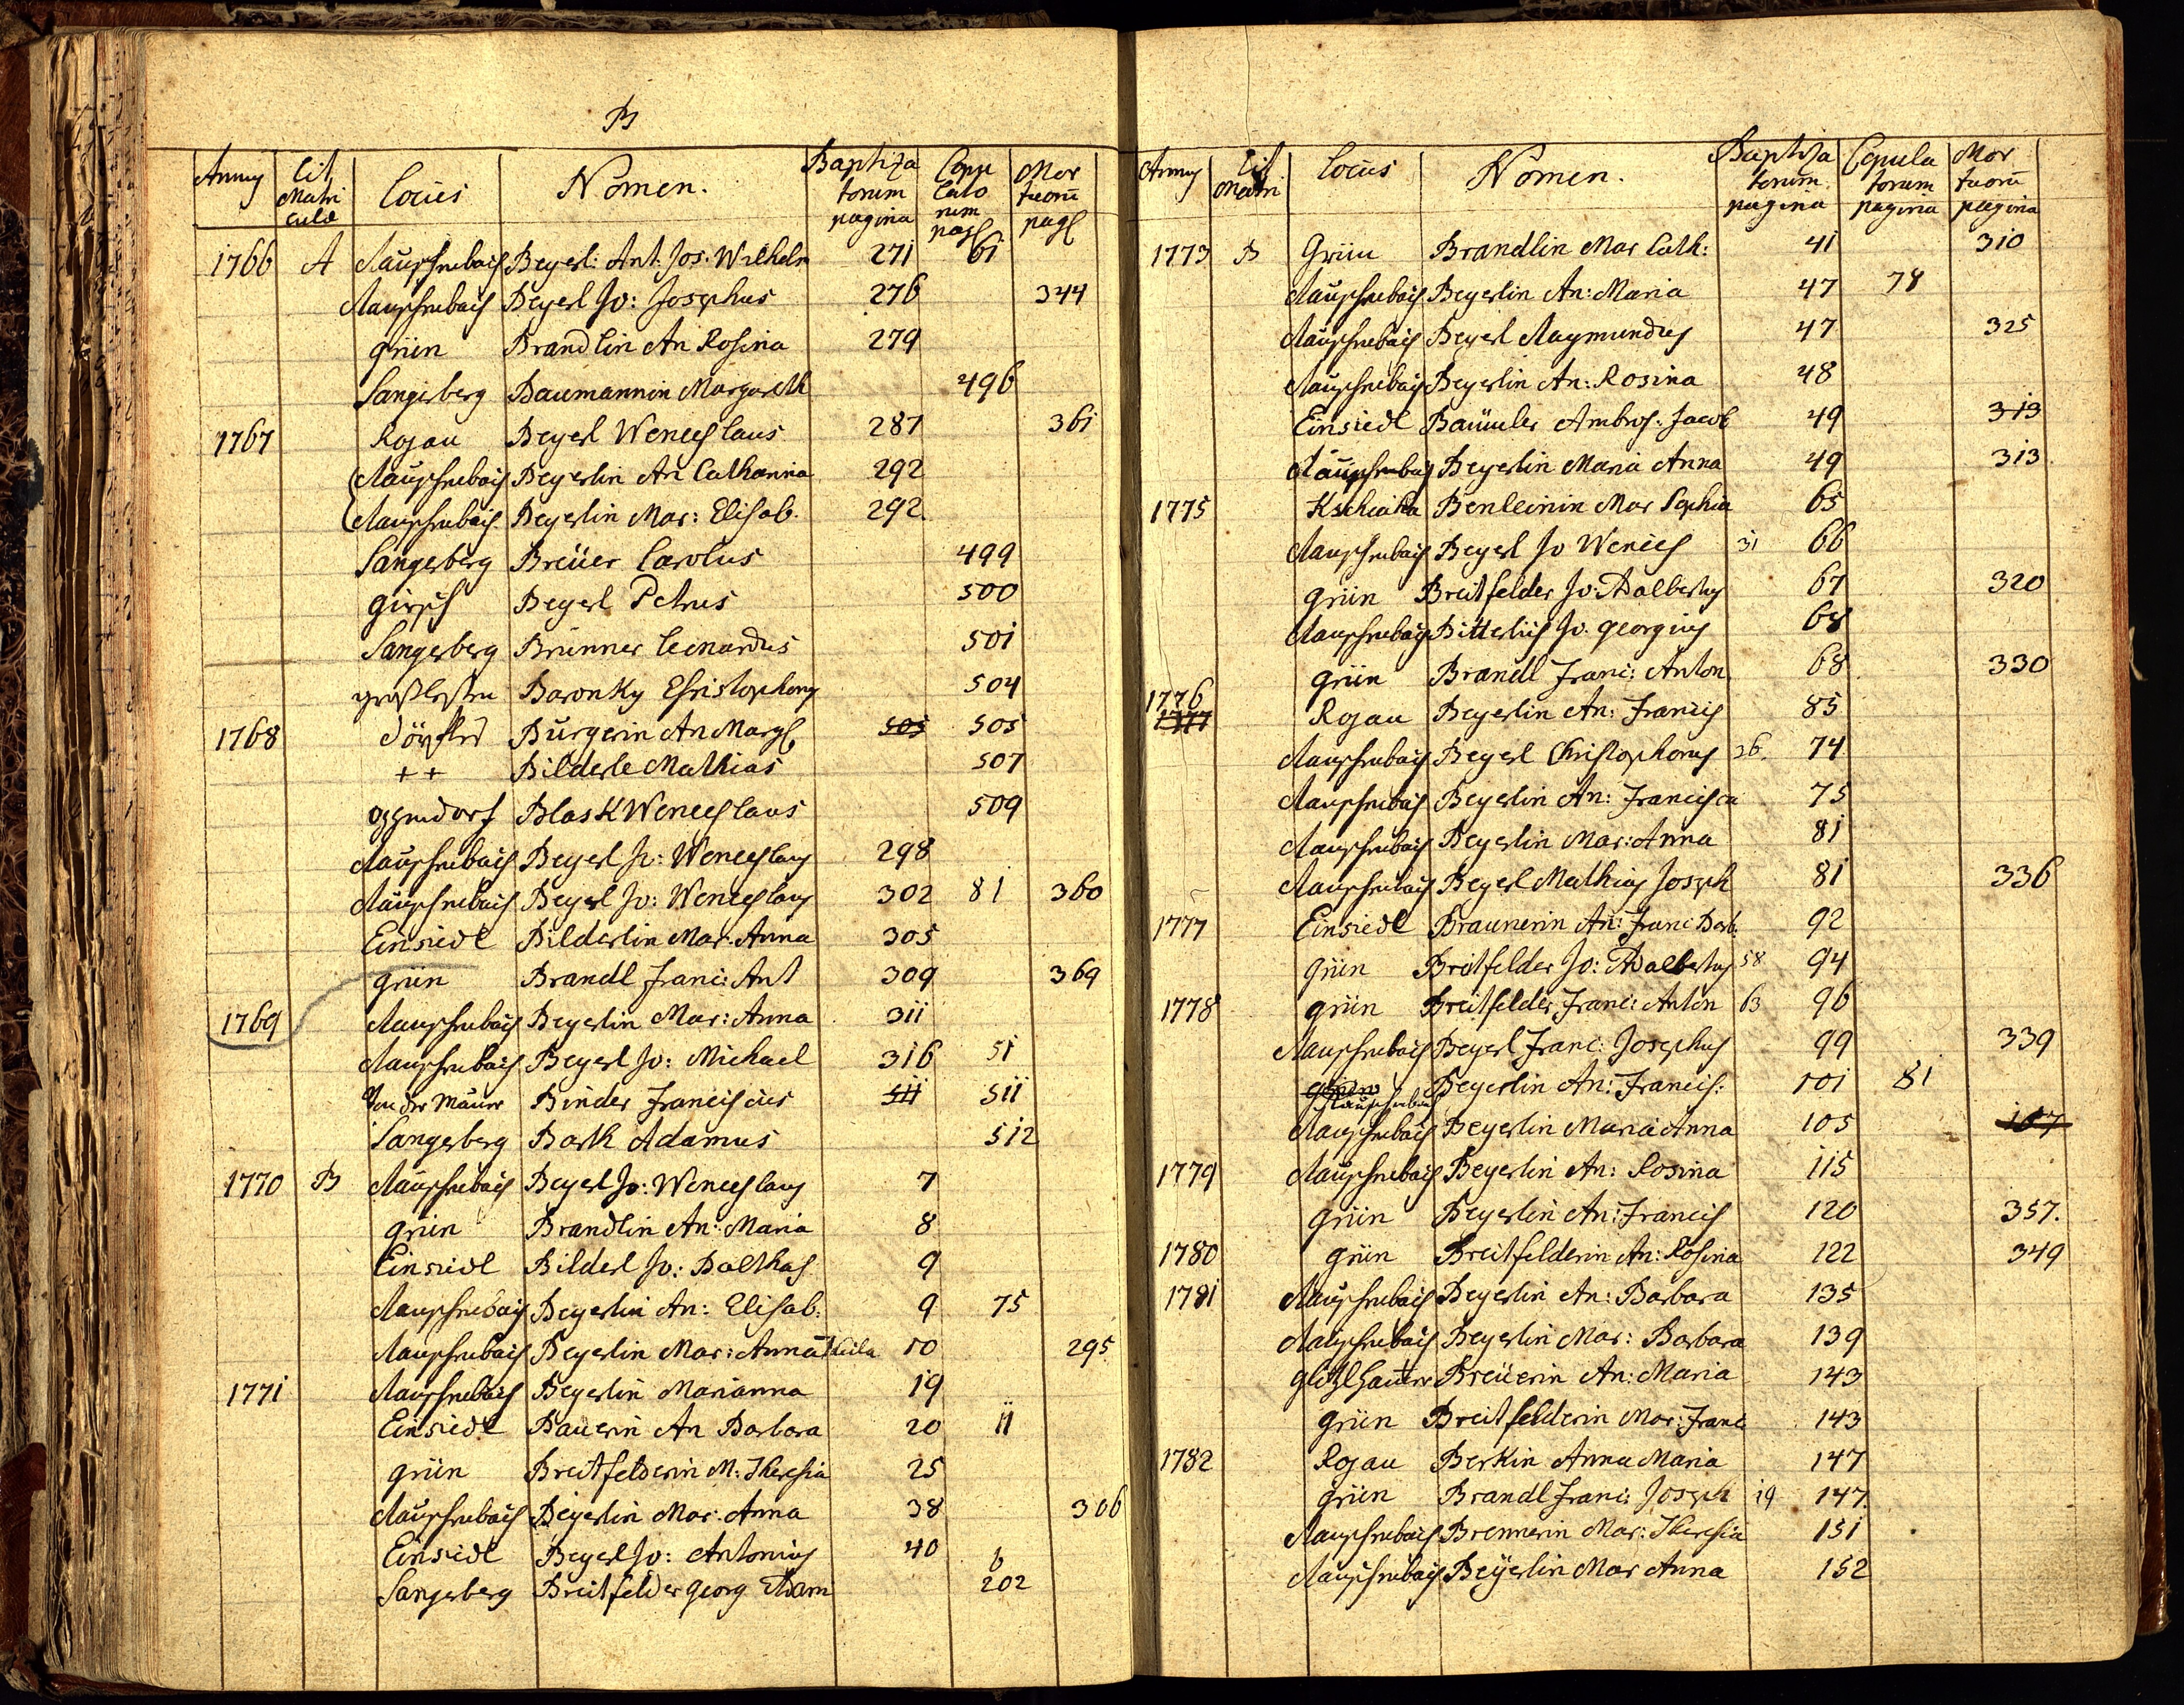 B
Annus Lit. Matri culae Locus Nomen. Baptiza torum pagina Copu lato rum pag Mor tuorū pag
1766 A Rauschenbach Beyerl: Ant: Jos: Wilhelm 271 61
Rauschenbach Beyerl Jo: Josephus 276 344
grün Brandlin An Rosina 279
Sangerberg Baumannin Margareth 496
1767 Rojau Beyerl Wenceslaus 287 361
Rauschenbach Beyerlin An Catharina 292
Rauschenbach Beyerlin Mar: Elisab. 292
Sangerberg Breüer Carolus 499
Beyerl Petrus 500
Sangerberg Brunner Leonardus 501
Baronky Christophorus 504
1768 Burgerin An Marg 505 505
++ Bilderle Mathias 507
Blask Wenceslaus 509
Rauschenbach Beyerl Jo: Wenceslaus 298
Rauschenbach Beyerl Jo: Wenceslaus 302 81 360
Einsiedl Bilderlin Mar: Anna 305
grün Brandl Franc: Ant 309 369
1769 Rauschenbach Beyerlin Mar: Anna 311
Rauschenbach Beyerl Jo: Michael 316 51
Binder Franciscus 511 511
Sangerberg Barth Adamus 512
1770 B Rauschenbach Beyerl Jo: Wenceslaus 7
grün Brandlin An: Maria 8
Einsiedl Bilderl Jo: Balthas 9
Rauschenbach Beyerlin An: Elisab: 9 75
Rauschenbach Beyerlin Mar: Anna 10 295
1771 Rauschenbach Beyerlin Marianna 19
Einsiedl Bauerin An Barbara 20 11
grün Breitfelderin M: Theresia 25
Rauschenbach Beyerlin Mar: Anna 38 306
Einsiedl Beyerl Jo: Antonius 40 6
Sangerberg Breitfelder Georg Adam 202
Annus Lit Matri Locus Nomen. Baptiza torum pagina Copula torum pagina Mor tuorū pagina
1773 B Grün Brandlin Mar Cath: 41 310
Rauschenbach Beyerlin An: Maria 47 78
Rauschenbach Beyerl Raymundus 47 325
Rauschenbach Beyerlin An: Rosina 48
Einsiedl Baumler Ambros: Jacob 49 313
Rauschenbach Beyerlin Maria Anna 49 313
1775 Mar Sophia 65
Rauschenbach Beyerl Jo Wences 31 66
grün Breitfelder Jo: Adalbertus 67 320
Rauschenbach Jo. Georgius 68
grün Brandl Franc: Anton 68 330
1776
1777 Rojau Beyerlin An: Francis 85
Rauschenbach Beyerl Christophorus 26. 74
Rauschenbach Beyerlin An: Francisca 75
Rauschenbach Beyerlin Mar: Anna 81
Rauschenbach Beyerl Mathias Joseph 81 336
1777 Einsiedl Braunerin An: Franc Barb. 92
grün Breitfelder Jo: Adalbertus 58 94
1778 grün Breitfelder Franc: Anton 63 96
Rauschenbach Beyerl Franc: Josephus 99 339
grün Rauschenbach Beyerlin An: Francis: 101 81
Rauschenbach Beyerlin Maria Anna 105 107
1779 Rauschenbach Beyerlin An: Rosina 115
grün Beyerlin An: Francis 120 357.
1780 grün Breitfelderin An: Rosina 122 349
1781 Rauschenbach Beyerlin An: Barbara 135
Rauschenbach Beyerlin Mar: Barbara 139
Breüerin An: Maria 143
grün Breitfelderin Mar: Franc 143
1782 Rojau Berkin Anna Maria 147
grün Brandl Franc: Joseph 19 147.
Rauschenbach Brennerin Mar: Theresia 151
Rauschenbach Beyerlin Mar Anna 152